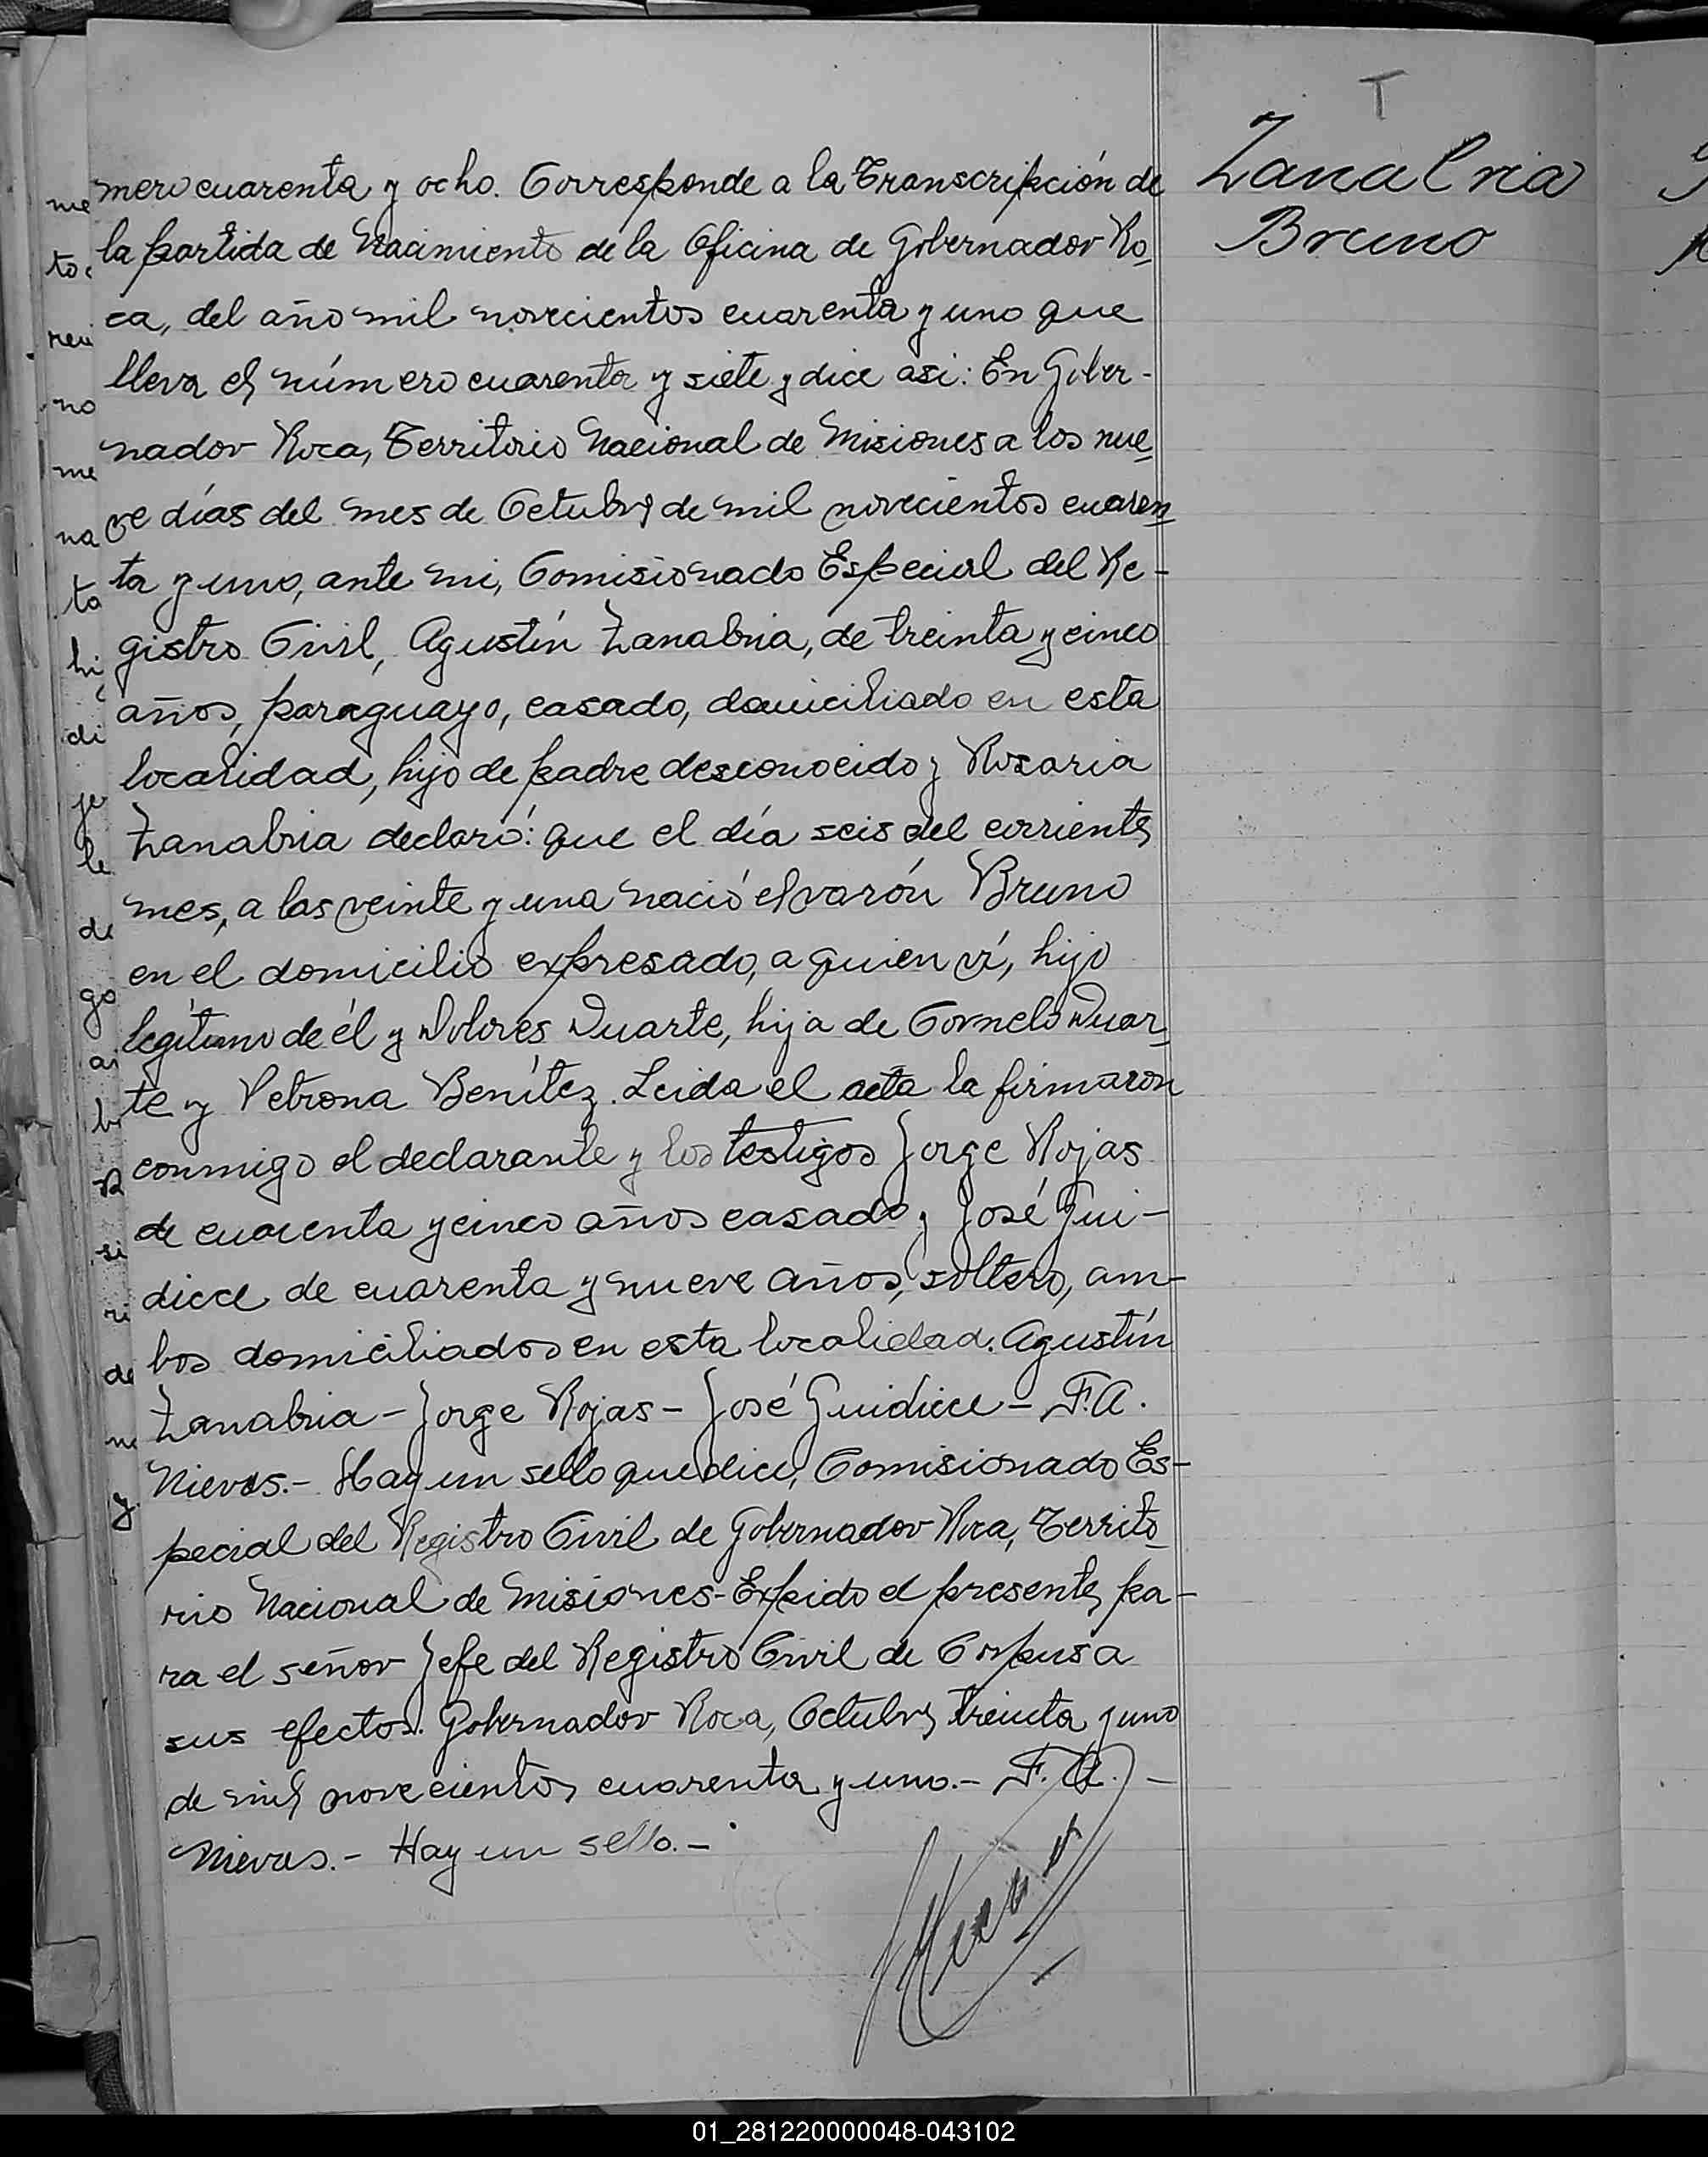 T
Zanabria
Bruno
mero cuarenta y ocho. Corresponde a la Transcripción de
la partida de Nacimiento de la Oficina de Gobernador Ro
ca, del año mil novecientos cuarenta y uno que
lleva el número cuarenta y siete y dice asi: En Gober-
nador Roca, Territorio Nacional de Misiones a los nue
ve días del mes de Octubre de mil novecientos cuaren
ta y uno, ante mi, Comisionado Especial del Re-
gistro Civil, Agustín Zanabria, de treinta y cinco
años, paraguayo, casado, domiciliado en esta
localidad, hijo de padre desconocido y Rosaria
Zanabria declaró: que el día seis del corriente
mes, a las veinte y una nació el varón Bruno
en el domicilio expresado, a quien ví, hijo
legítimo de él y Dolores Duarte, hija de Cornelo Duar
te y Petrona Benítez. Leida el acta la firmaron
conmigo el declarante y los testigos Jorge Rojas
de cuarenta y cinco años casado y José Gui-
dice de cuarenta y nueve años, soltero, am-
bos domiciliados en esta localidad. Agustín
Zanabria - Jorge Rojas - José Guidice - F. A.
Nieves.- Hay un sello que dice, Comisionado Es-
pecial del Registro Civil de Gobernador Roca, Territo
rio Nacional de Misiones - Expido el presente pa-
ra el señor Jefe del Registro Civil de Corpus a
sus efectos. Gobernador Roca, Octubre treinta y uno
de mil novecientos cuarenta y uno.- F. A. -
Nieves.- Hay un sello.-
01_281220000048-043102